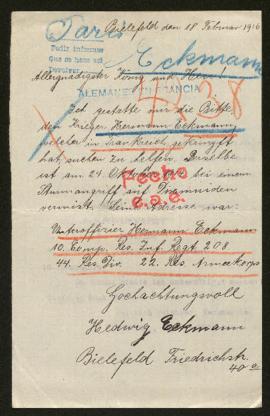 Bielefeld den 18 Februar 1916
Paris
Eckmann
Pedir informes
que se haga así
Devolver
Allergnädigster König und Herr!
ALEMANES FRANCIA
Ich gestatte mir die Bitte
den Krieger Hermann Eckmann,
welcher in Frankreich gekämpft
hat suchen zu helfen. Derselbe
ist am 24 Oktober bei einem
Sturmangriff auf
vermißt. Seine Adresse war:
Fecho
c.a.c.
Unteroffizier Hermann Eckmann
10. Comp. Res. Inf. Regt 208
44. Res. Div. 22. Res. Armeekorps
Hochachtungsvoll
Hedwig Eckmann
Bielefeld Friedrichstr.
40